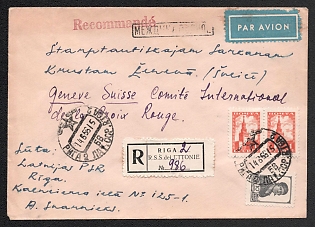 Recommandé
PAR AVION
Starptautiskajam Sarkanam
Krustam Ženēvā (Šveicē)
Geneve Suisse Comité International
de la Croix Rouge.
R
RIGA 2
R.S.S. de LETTONIE
№ 936
Sūta:
Latvijas PSR
Rīga.
Kalnciema ielā № 125-1.
A.